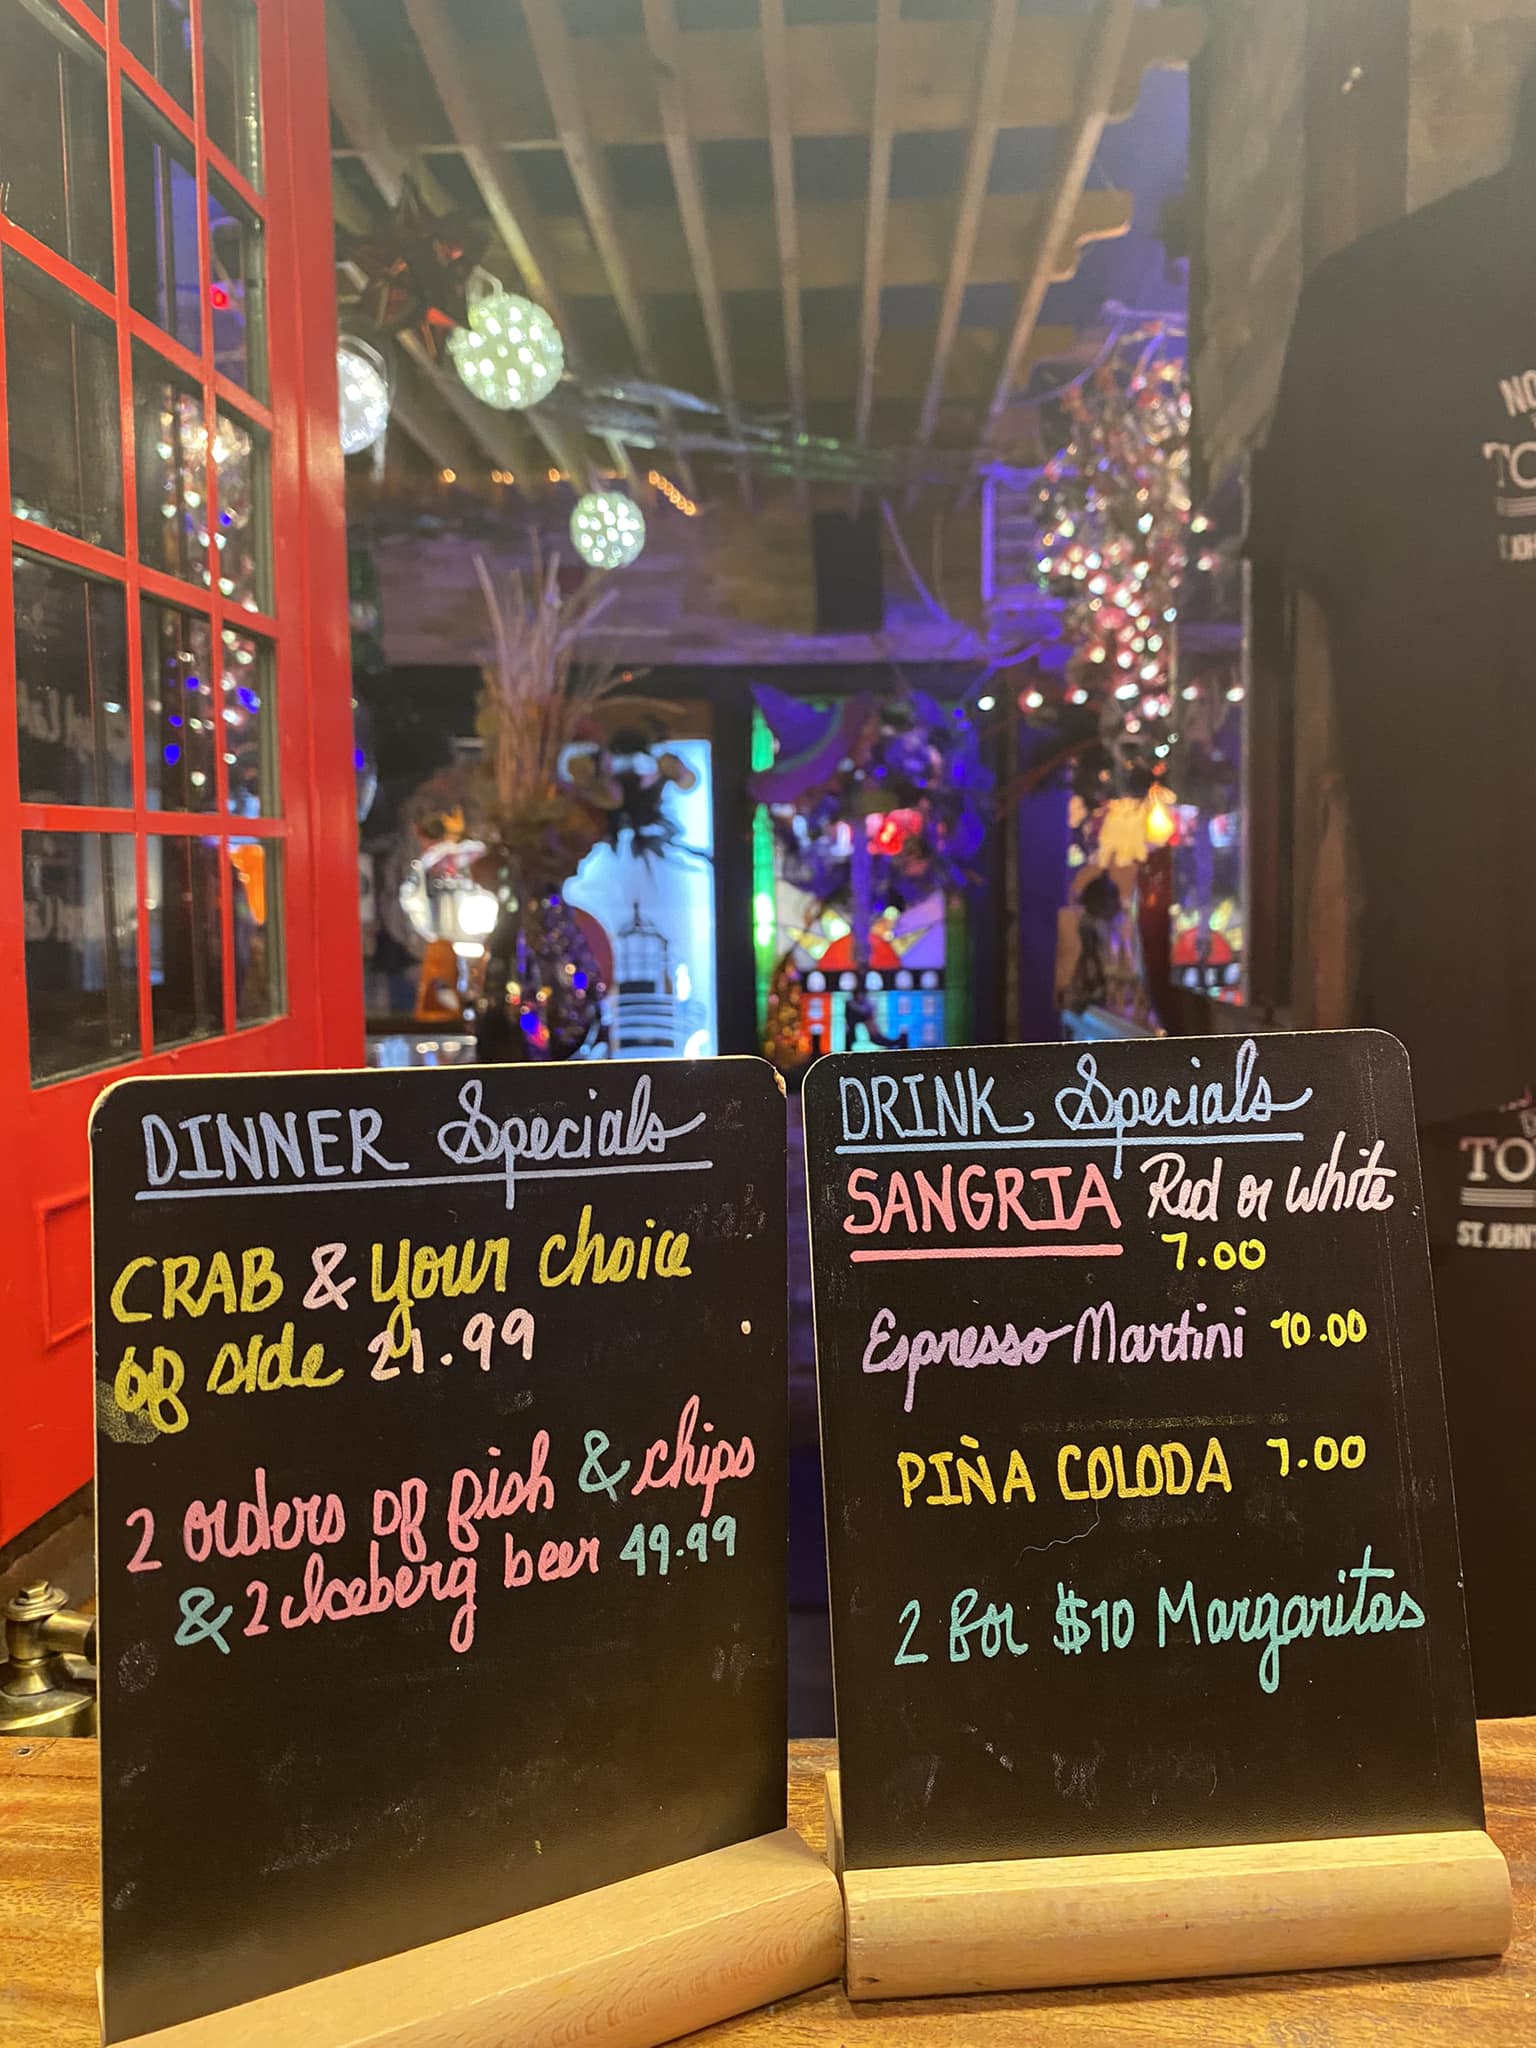 DINNER Specials
CRAB & your choice
of side 21.99
2 orders of fish & chips
& 2 Iceberg beer 49.99
DRINK Specials
SANGRIA Red or White
7.00
Espresso Martini 10.00
PIÑA COLODA 7.00
2 for $10 Margaritas
NO
TO
ST. JOHN'S